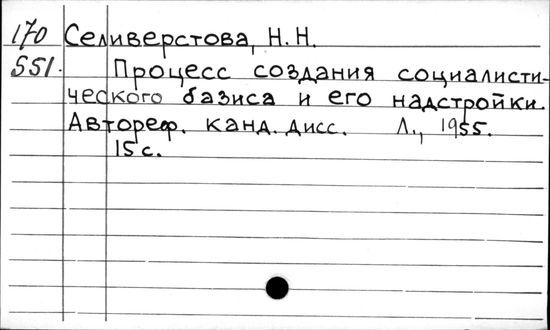 170 Селиверстова, Н.Н.
551. Процесс создания социалисти-
ческого базиса и его надстройки.
Автореф. канд. дисс. Л., 1955.
15 с.